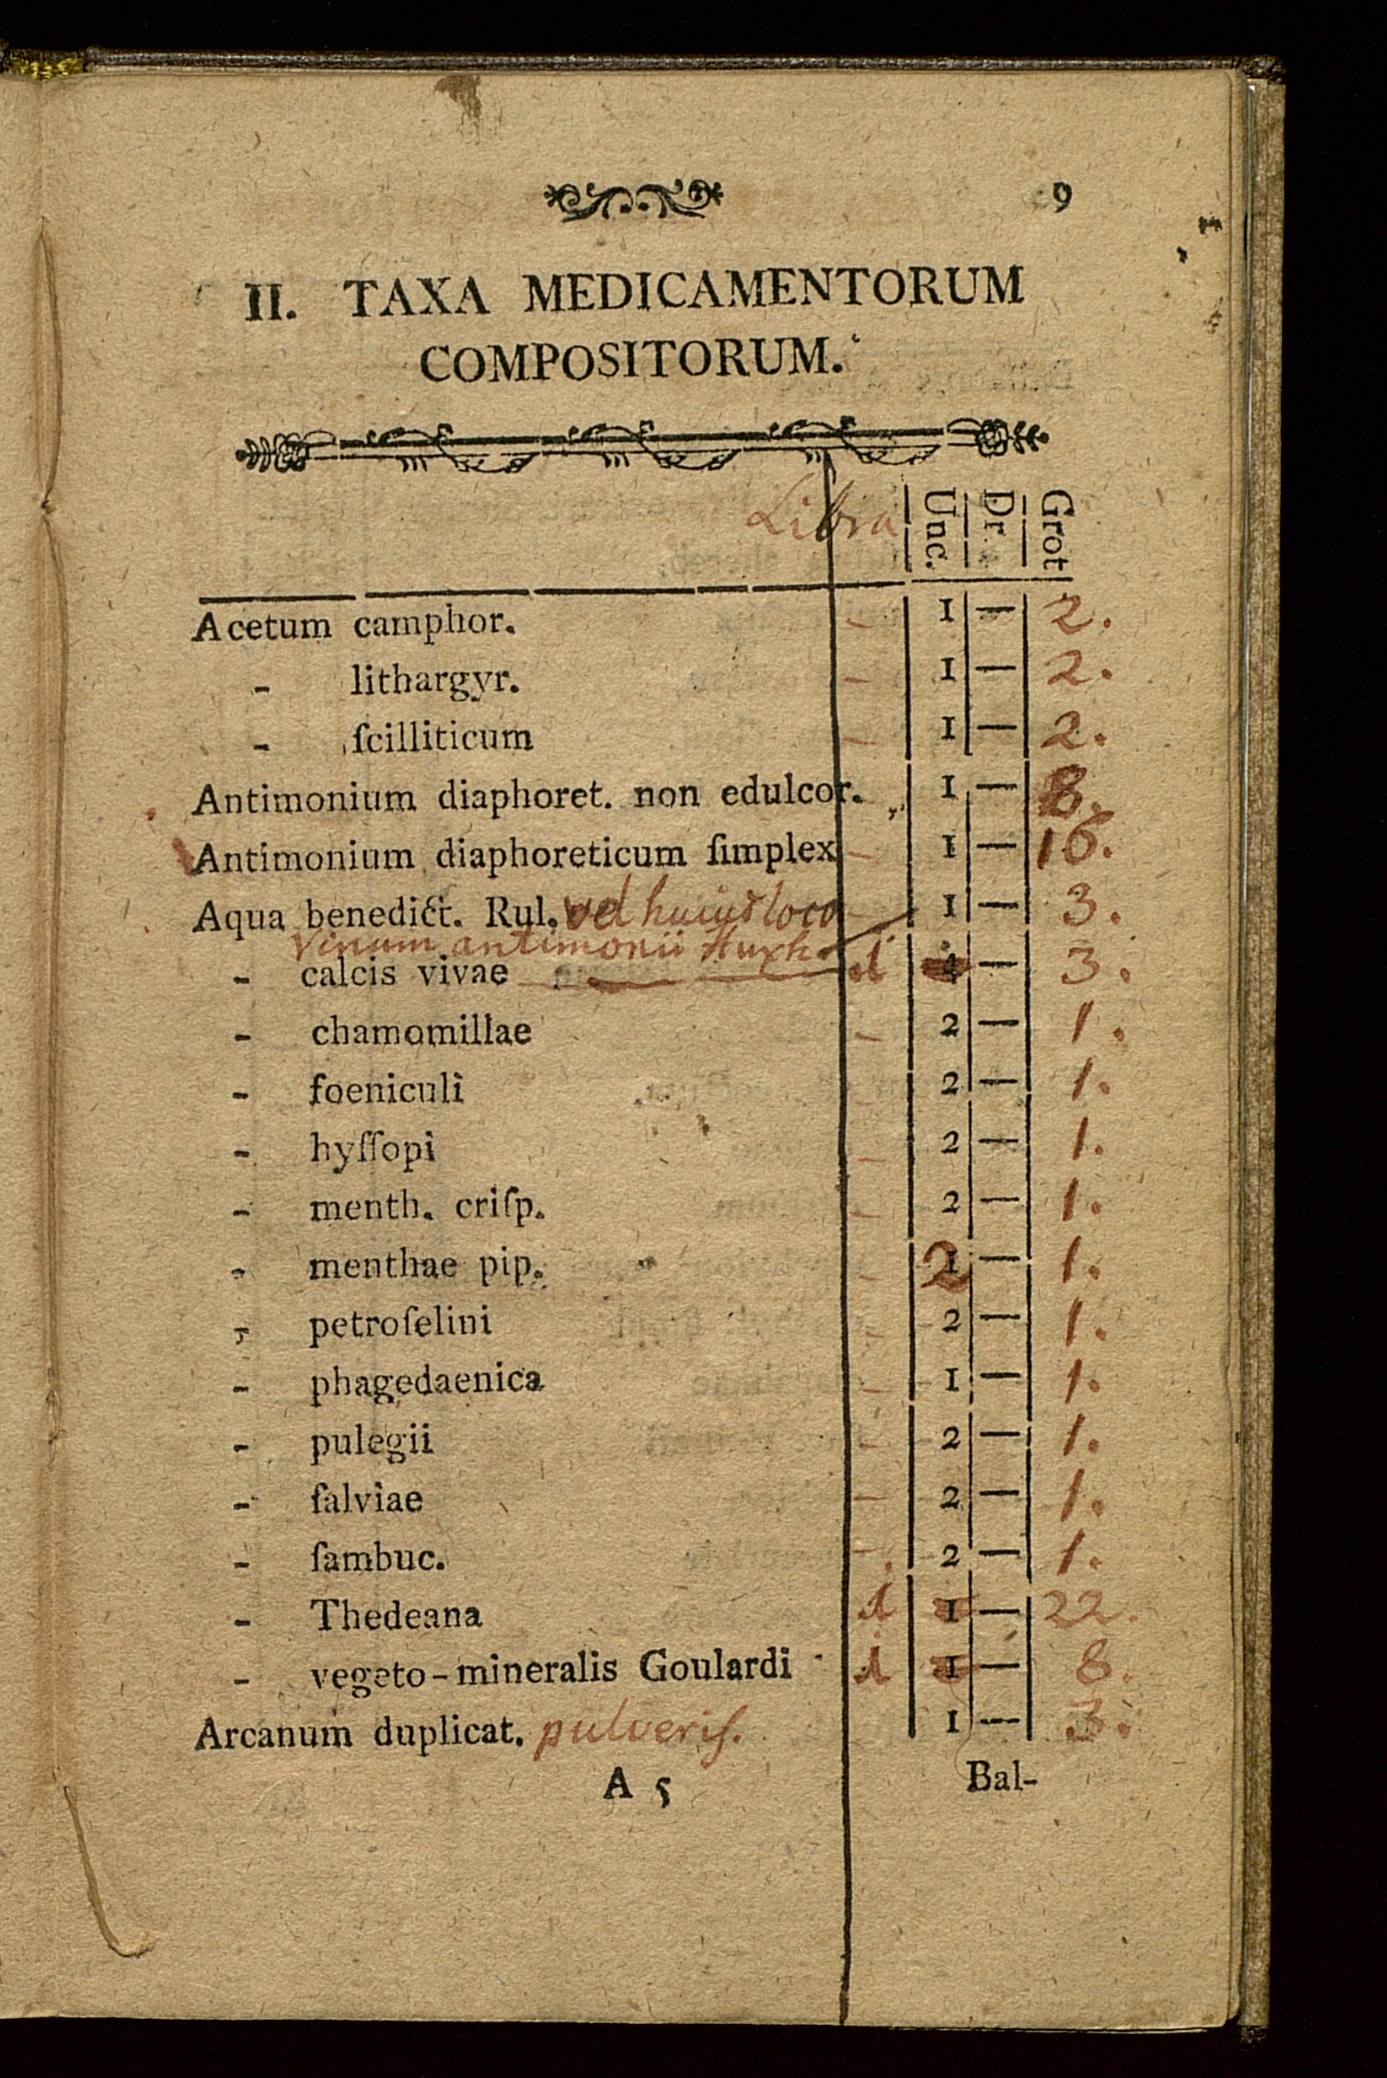 9
II. TAXA MEDICAMENTORUM
COMPOSITORUM.
Libra Unc. Dr. Grot
Acetum camphor. - 1 — 2.
- lithargyr. - 1 — 2.
- ſcilliticum - 1 — 2.
Antimonium diaphoret. non edulcor. 1 — 8.
Antimonium diaphoreticum ſimplex - 1 — 16.
Aqua benedict. Rul. vel huius loco - 1 — 3.
Vinum antimonii Huxh.
- calcis vivae 1 4 — 3.
- chamomillae - 2 — 1.
- foeniculi - 2 — 1.
- hyſſopi - 2 — 1.
- menth. criſp. - 2 — 1.
- menthae pip. - 2 — 1.
- petroſelini - 2 — 1.
- phagedaenica - 1 — 1.
- pulegii - 2 — 1.
- ſalviae - 2 — 1.
- ſambuc. - 2 — 1.
- Thedeana 1 1 — 22.
- vegeto-mineralis Goulardi 1 1 — 8.
Arcanum duplicat. pulveriſ. 1 — 3.
A 5 Bal-